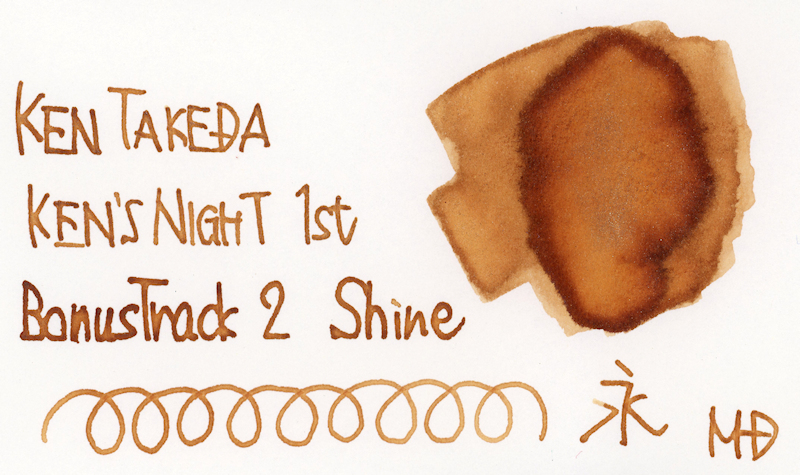 KEN TAKEDA
KEN'S NIGHT 1st
BonusTrack 2 Shine
永 MD